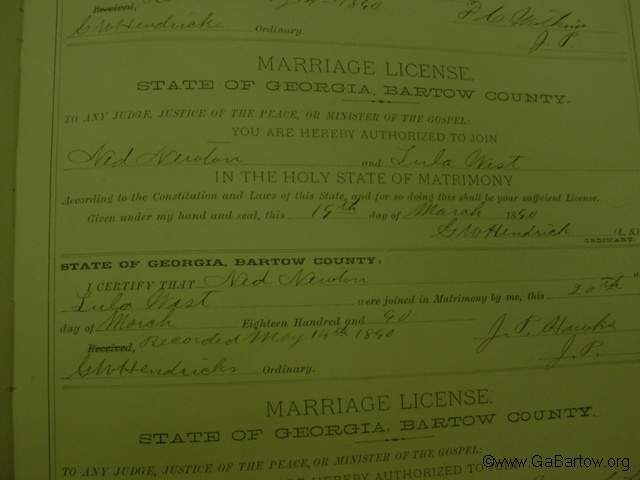 Received, 1890 F C Watkins
GW Hendricks Ordinary. J. P.
MARRIAGE LICENSE.
STATE OF GEORGIA, BARTOW COUNTY.
TO ANY JUDGE, JUSTICE OF THE PEACE, OR MINISTER OF THE GOSPEL:
YOU ARE HEREBY AUTHORIZED TO JOIN
Ned Newton and Lula West
IN THE HOLY STATE OF MATRIMONY
According to the Constitution and Laws of this State, and for so doing this shall be your sufficient License.
Given under my hand and seal, this 19th day of March 1890
GW Hendrick (L. S.)
ORDINARY.
STATE OF GEORGIA, BARTOW COUNTY:
I CERTIFY THAT Ned Newton
Lula West were joined in Matrimony by me, this 20th
day of March Eighteen Hundred and 90
Received, Recorded May 14th 1890 J. P. Hawks
GW Hendricks Ordinary. J. P.
MARRIAGE LICENSE.
STATE OF GEORGIA, BARTOW COUNTY.
TO ANY JUDGE, JUSTICE OF THE PEACE, OR MINISTER OF THE GOSPEL:
HEREBY AUTHORIZED TO JOIN
©www.GaBartow.org